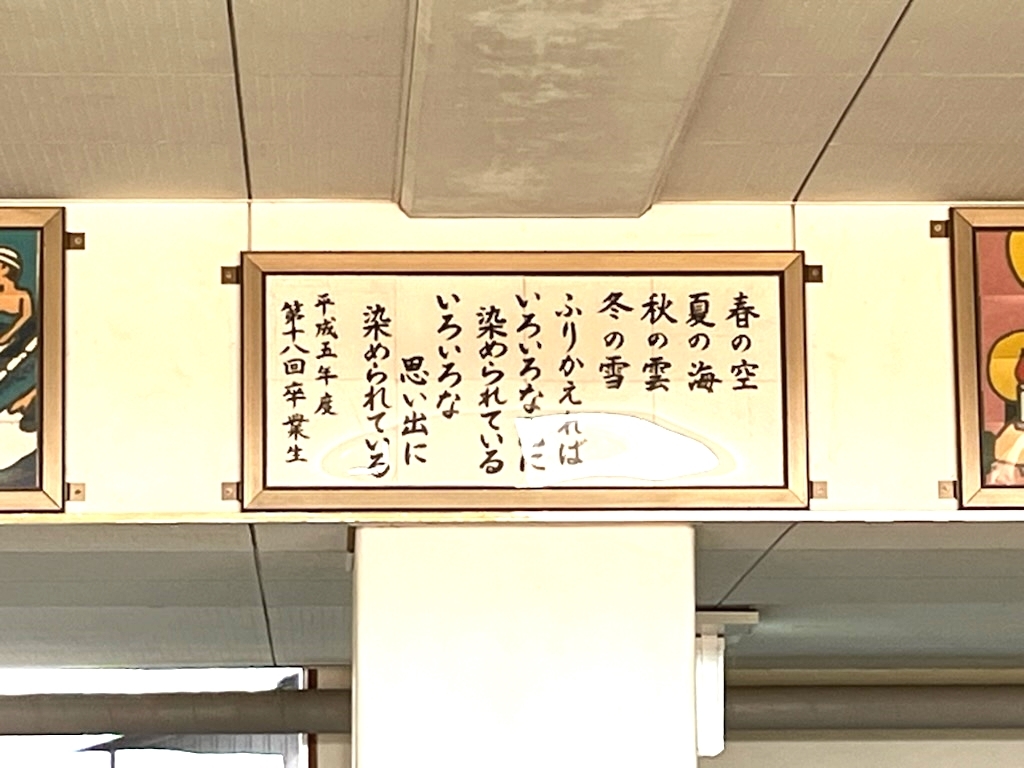 春の空
夏の海
秋の雲
冬の雪
ふりかえれば
いろいろな に
染められている
いろいろな
思い出に
染められている
平成五年度
第十八回卒業生